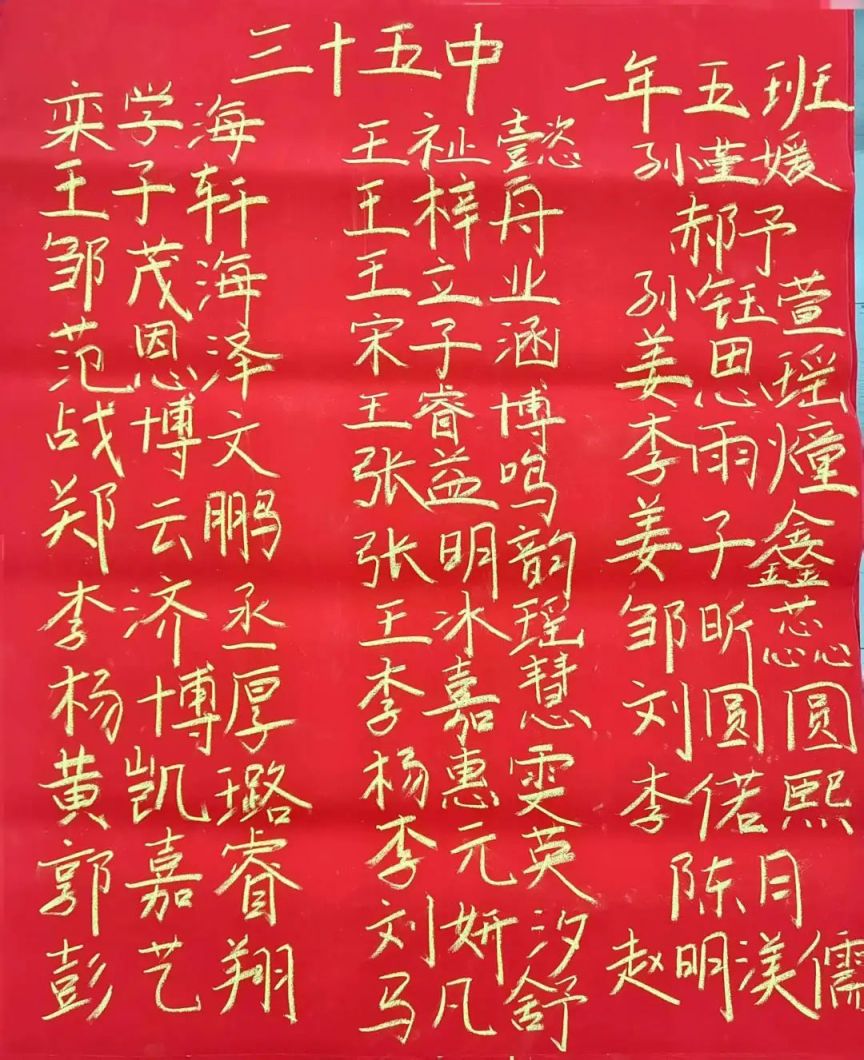 三十五中
一年五班
栾学海
王子轩
邹茂海
范恩泽
战博文
郑云鹏
李济丞
杨博厚
黄凯璐
郭嘉睿
彭艺翔
王祉懿
王梓舟
王立业
宋子涵
王睿博
张益鸣
张明韵
王冰瑶
李嘉慧
杨惠雯
李元英
刘妍汐
马凡舒
孙堇媛
郝予
孙钰萱
姜思瑶
李雨燑
姜子鑫
邹昕蕊
刘圆圆
李偌熙
陈月
赵明渼儒